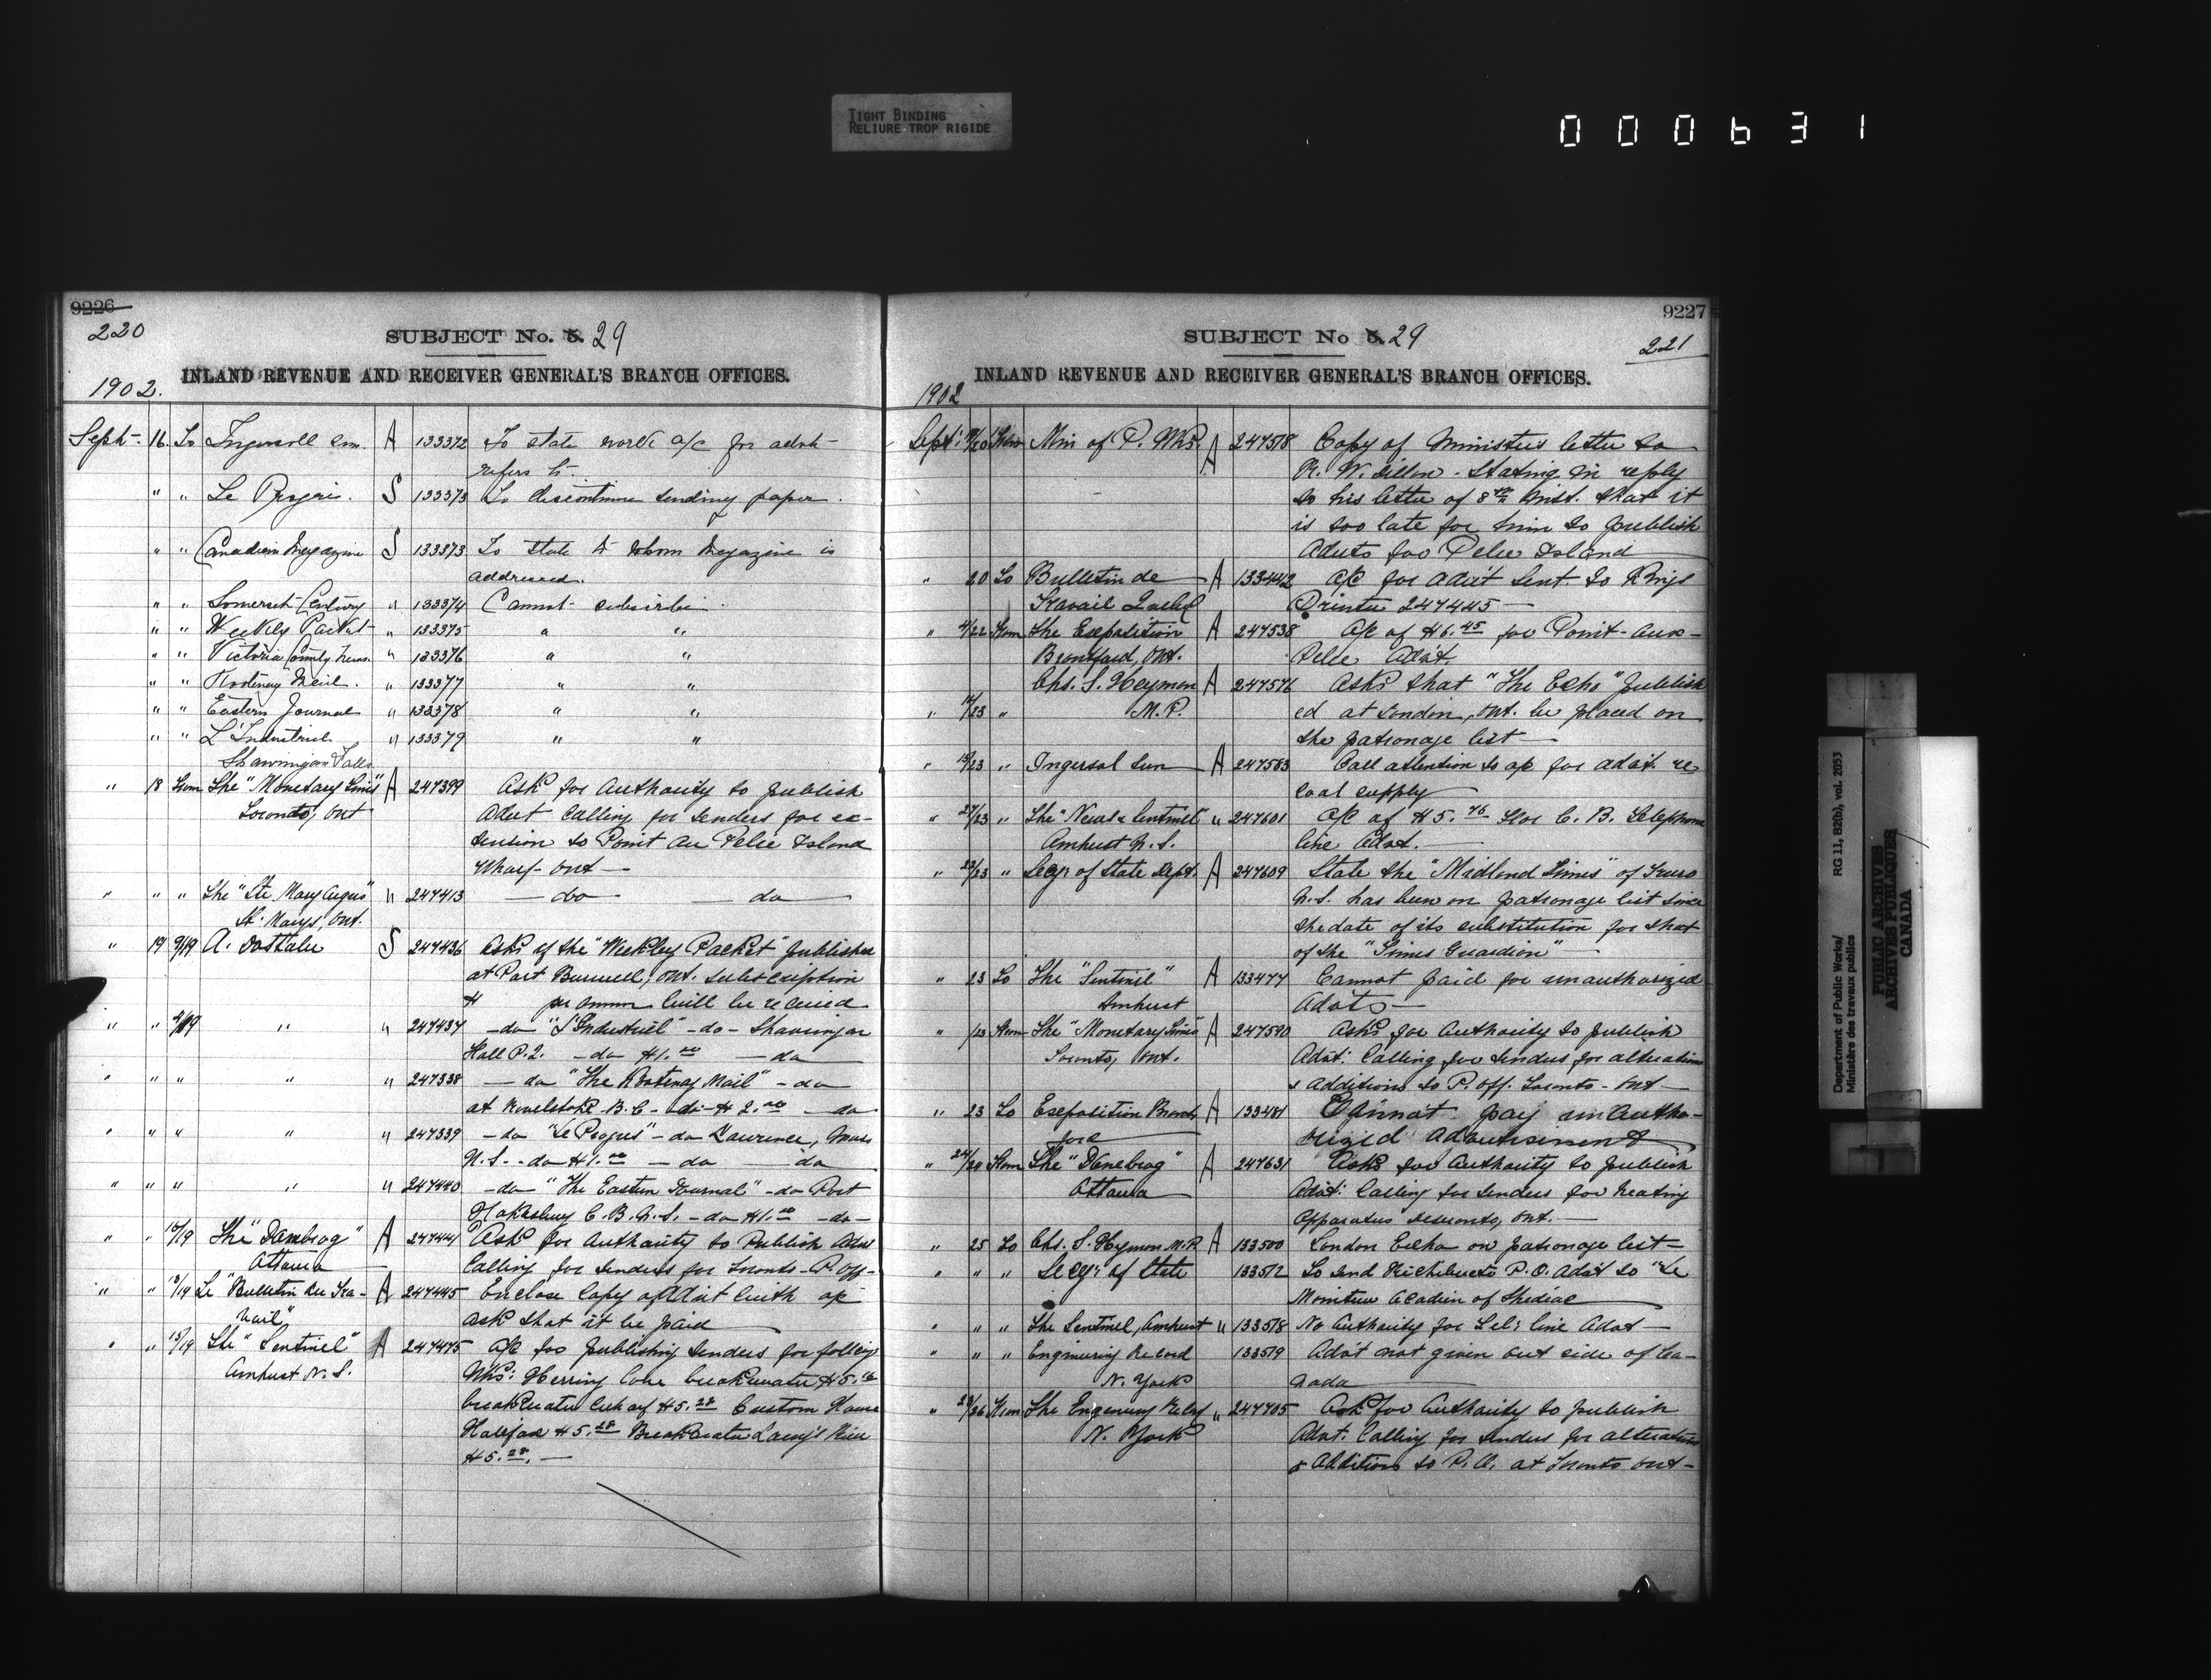 TIGHT BINDING
RELIURE TROP RIGIDE
000631
9226
220
SUBJECT No. 5. 29
INLAND REVENUE AND RECEIVER GENERAL'S BRANCH OFFICES.
1902.
Sept. 16. To Ingersoll Sun. A 133372 To state work a/c for advt
refers to.
" " Le Progrès. S 133373 To discontinue sending paper.
" " Canadian Magazine S 133373 To state to whom Magazine is
addressed.
" " Somerset Century " 133374 Cannot subscribe.
" " Weekly Packet " 133375 " "
" " Victoria County News. " 133376 " "
" " Kootenay Mail. " 133377 " "
" " Eastern Journal " 133378 " "
" " L'Industriel " 133379 " "
Shawinigan Falls
" 18 From The "Monetary Times" A 247399 Ask for Authority to publish
Toronto, Ont Advt calling for tenders for ex-
tension to Point au Pelee Island
Wharf - Ont —
" " " The "Ste Mary Argus" " 247413 — do — do —
St. Marys, Ont.
" 19 9/19 A. S 247436 Asks if the "Weekley Packet" published
at Port Burwell, Ont. subscription
$ per annum will be received
" " 9/19 " " 247437 - do "L'Industriel" - do - Shawinigan
Hall P.Q. - do $1.00 — do
" " " " " 247338 — do "The Kootenay Mail" - do
at Revelstoke B.C - do - $2.00 — do
" " " " " 247339 - do "Le Progres" - do Lawrence, Mass
N.S. - do $1.00 — do — do
" " " " " 247440 - do - "The Eastern Journal" - do Port
Hakesbury C.B.N.S. - do $1.00 - do -
" " 10/19 The "Danebrog" A 247441 Ask for Authority to Publish Advt
Ottawa Calling for tenders for Toronto - P. Off -
" " 13/19 Le "Bulletin du Tra- A 247445 Enclose Copy of Advt with a/c
vail" ask that it be paid
" " 15/19 The "Sentinel" A 247475 a/c for publishing tenders for follog
Amherst N.S. Wks: Herring Cove breakwater $5.
breakwater wharf $5.28 Custom House
Halifax $5.28 Breakwater River
$5.28. —
9227
SUBJECT No 5. 29
221
INLAND REVENUE AND RECEIVER GENERAL'S BRANCH OFFICES.
1902
Sept: /20 From Min of P. Wks. A 247518 Copy of Ministers letter to
R. W. Dillon - Stating in reply
to his letter of 8th Inst. that it
is too late for him to publish
Advts for Pelee Island
" 20 To Bulletin de A 133442 a/c for Adv't sent to Kings
Travail Quebec Printer 247445 —
" 4/22 From The Exposition A 247538 a/c of $6.45 for Point-aux-
Brantford, Ont. Pelee Adv't.
Chs. S. Heyman A 247576 Asks that "The Echo" publish
" 14/23 " M.P. ed at London, Ont. be placed on
the patronage list —
" 13/23 " Ingersol Sun A 247583 Call attention to a/c for adv't. re
coal supply
" 27/23 " The "News & Sentinel" " 247601 a/c of $5.76 for C.B. Telephone
Amherst N.S. line Advt. —
" 23/23 " Secy. of State Dept. A 247609 State the "Midland Times" of Truro
N.S. has been on patronage list since
the date of its substitution for that
of the "Times Guardian" —
" 23 To The "Sentinel" A 133477 Cannot paid for unauthorized
Amherst Adv'ts —
" /23 From The "Monetary Times" A 247590 Asks for Authority to publish
Toronto, Ont. Adv't: Calling for tenders for alterations
& Additions to P. Off. Toronto - Ont —
" 23 To Exposition Brant- A 133481 Cannot pay unautho-
ford rized advertisement
" 24/24 From The "Danebrog" A 247631 Asks for Authority to publish
Ottawa Adv't: Calling for tenders for heating
Apparatus Deseronto, Ont. —
" 25 To Chs. S. Heyman M.P. A 133500 London Echo on patronage list —
" " " Secy: of State 133512 To send Richibucto P.O. Adv't to "Le
Moniteur Acadien of Shediac
" " " The Sentinel, Amherst " 133518 No Authority for Tel: line Advt —
" " " Engineering Record 133519 Adv't not given out side of Ca-
N. York nada
" 23/26 From The Engineering Record " 247705 Ask for Authority to publish
N. York Advt. Calling for tenders for alterations
& Additions to P.O. at Toronto Ont —
Department of Public Works/
Ministère des travaux publics
RG 11, B2(b), vol. 2053
PUBLIC ARCHIVES
ARCHIVES PUBLIQUES
CANADA